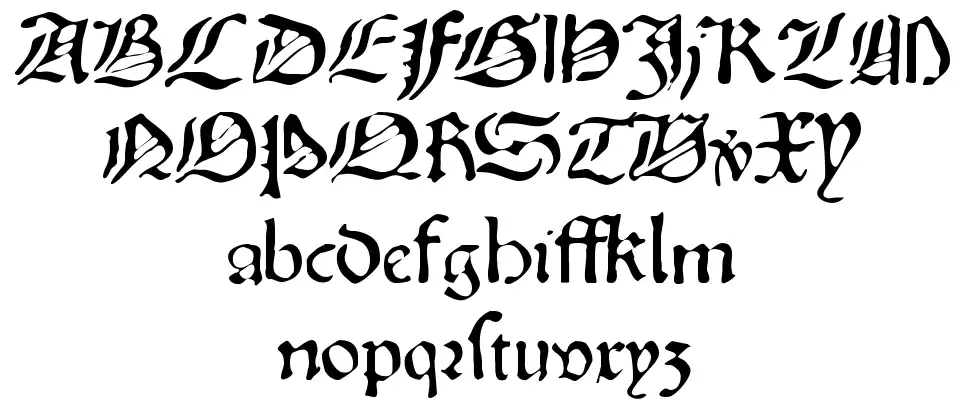 ABCDEFGHIjKLM
NOPQRSTUvXY
abcdefghiffklm
nopqꝛſtuvxyz